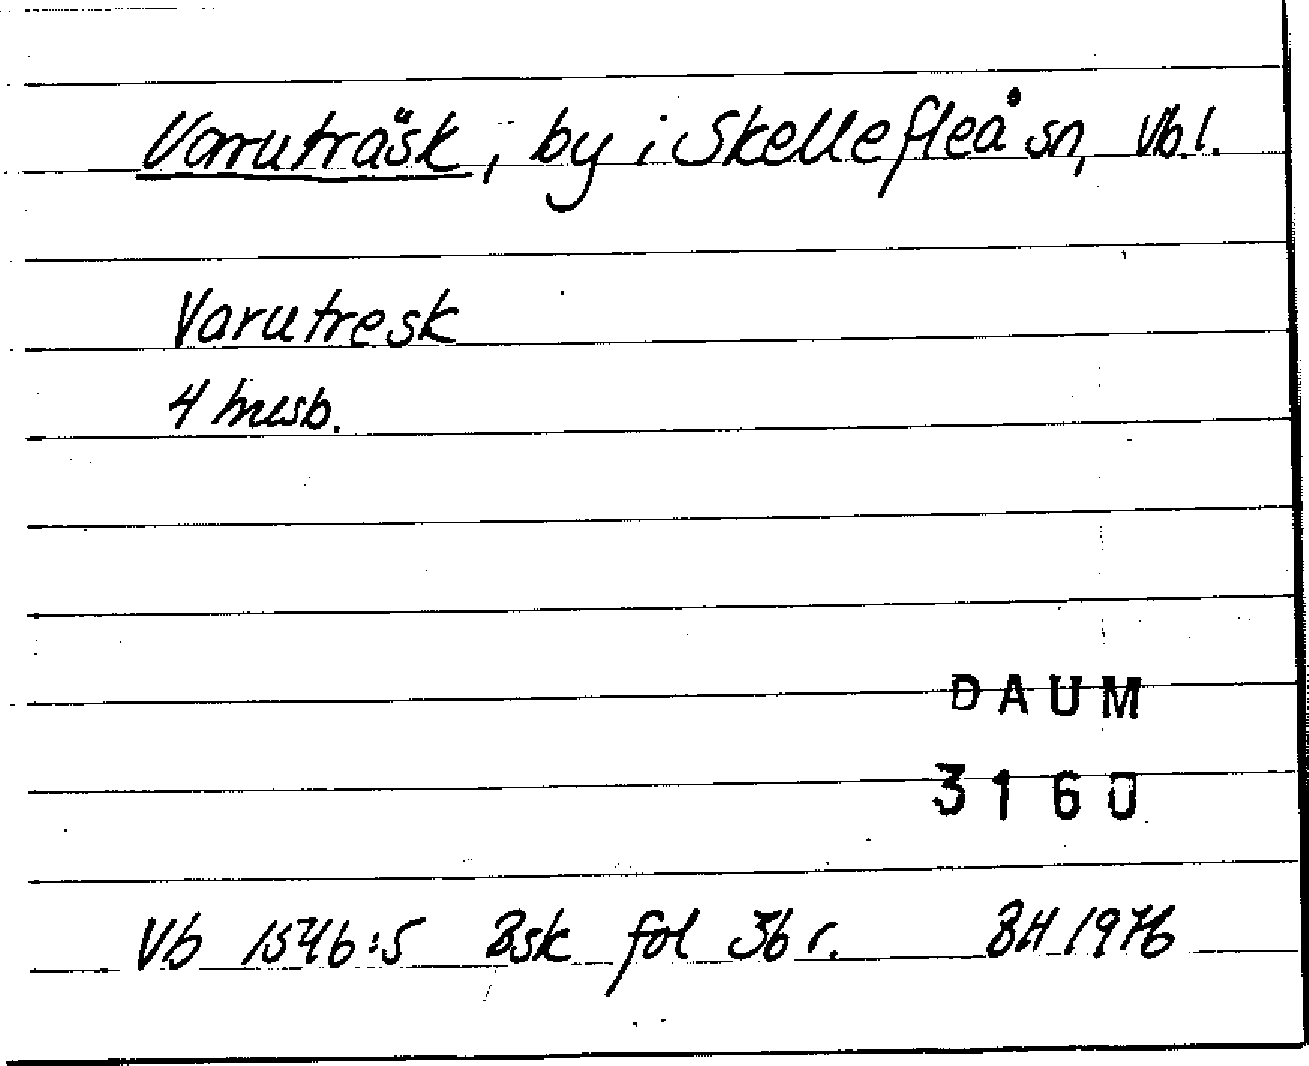 Varuträsk, by i Skellefteå sn, Vb.l.
Varutresk
4 husb.
DAUM
3160
Vb 1546:5 Bsk fol 36 r. BH 1976